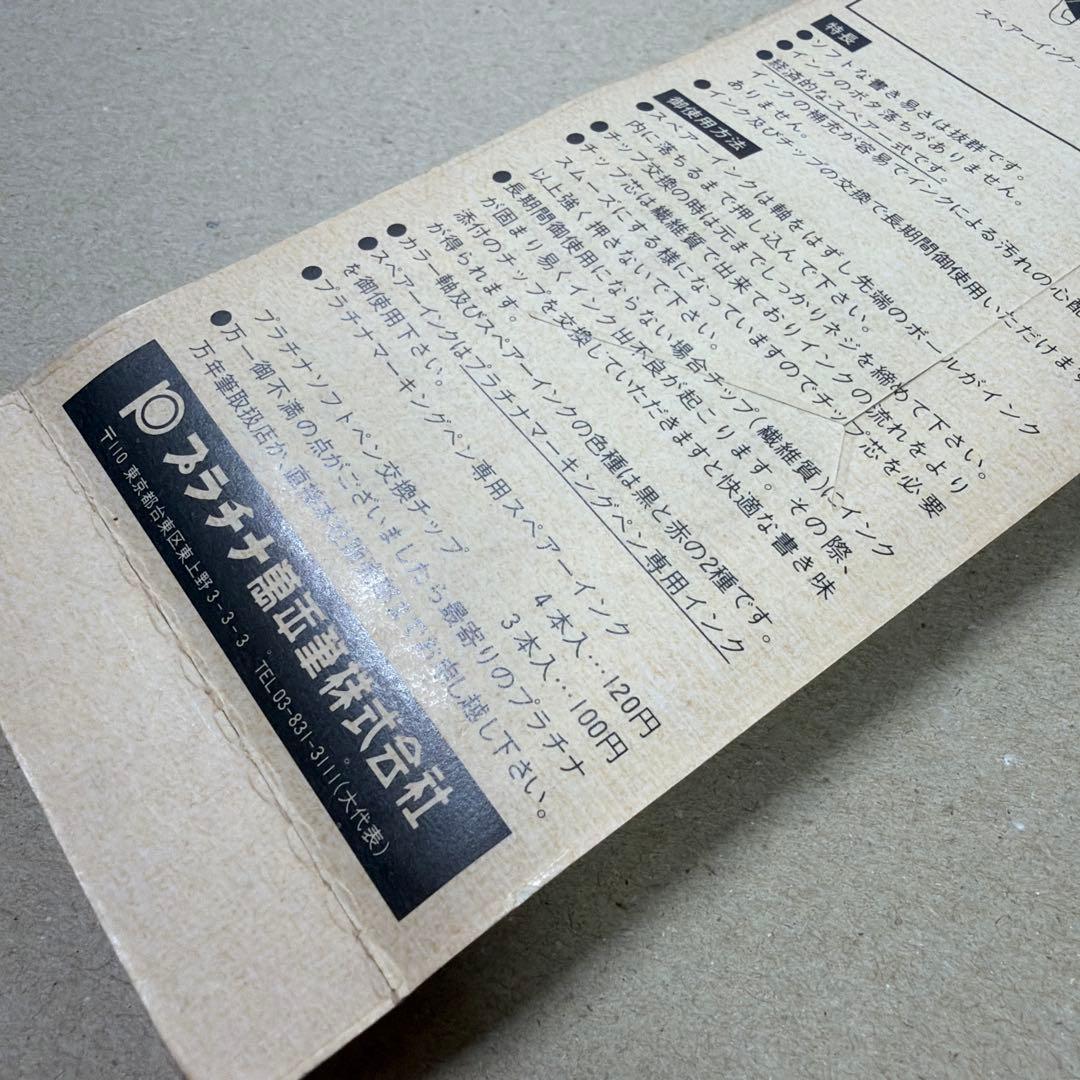 スペアーインク
特長
●ソフトな書き易さは抜群です。
●インクのボタ落ちがありません。
●経済的なスペアー式です。
インクの補充が容易でインクによる汚れの心配
ありません。
●インク及びチップの交換で長期間御使用いただけます
御使用方法
●スペアーインクは軸をはずし先端のボールがインク
内に落ちるまで押し込んで下さい。
●チップ交換の時は元までしっかりネジを締めて下さい。
●チップ芯は繊維質で出来ておりインクの流れをより
スムーズにする様になっていますのでチップ芯を必要
以上強く押さないで下さい。
●長期間御使用にならない場合チップ(繊維質)にインク
が固まり易くインク出不良が起こります。その際、
添付のチップを交換していただきますと快適な書き味
が得られます。
●カラー軸及びスペアーインクの色種は黒と赤の2種です。
●スペアーインクはプラチナマーキングペン専用インク
を御使用下さい。
●プラチナマーキングペン専用スペアーインク
4本入…120円
プラチナソフトペン交換チップ 3本入…100円
●万一御不満の点がございましたら最寄りのプラチナ
万年筆取扱店か、直接本社販売課までお申し越し下さい。
プラチナ萬年筆株式会社
〒110 東京都台東区東上野3-3-3 TEL03-831-3111(大代表)